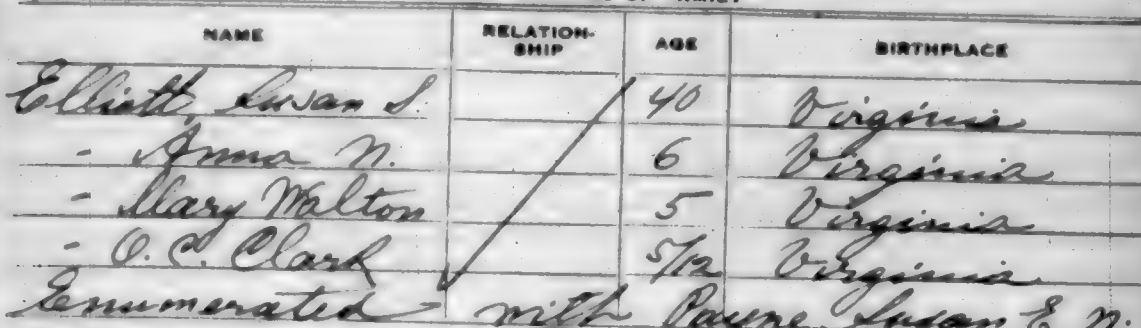 NAME RELATION-SHIP AGE BIRTHPLACE
Elliott, Susan S. 40 Virginia
- Anna N. 6 Virginia
- Mary Walton 5 Virginia
- O. C. Clark 5/12 Virginia
Enumerated - with Payne, Susan E. N.